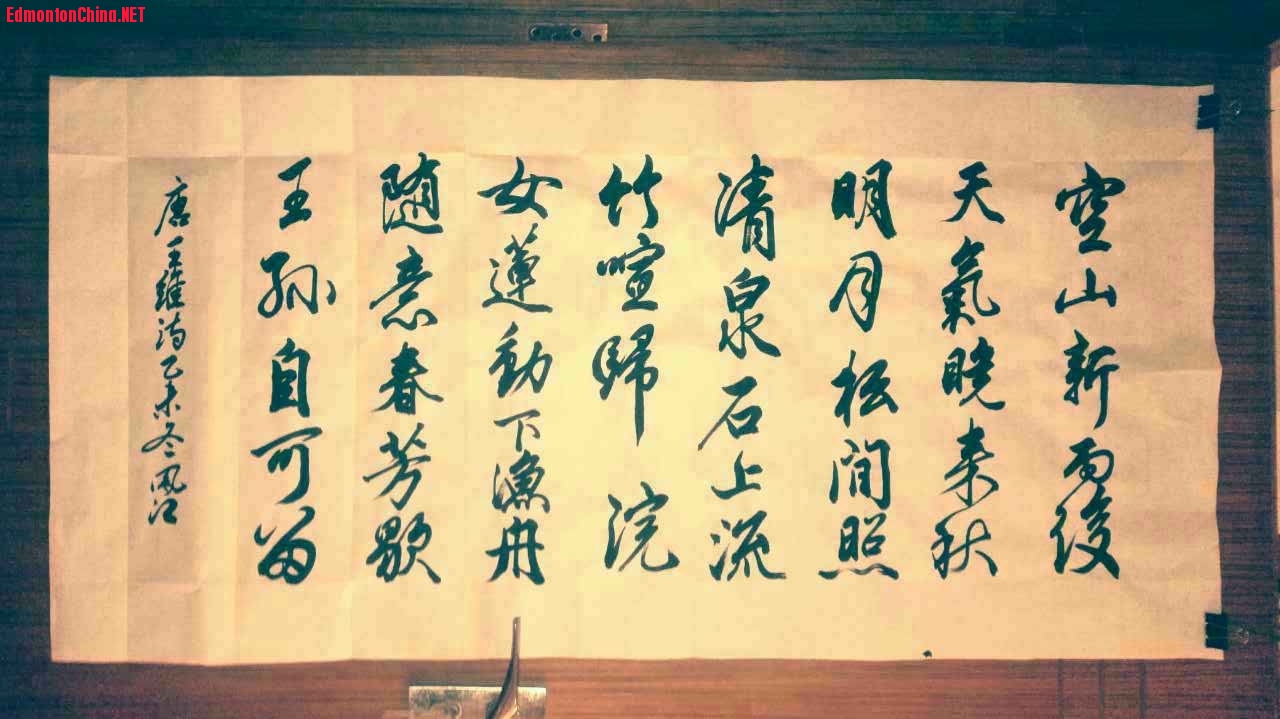 EdmontonChina.NET
空山新雨後
天氣晚来秋
明月松間照
清泉石上流
竹喧歸浣
女蓮動下漁舟
随意春芳歇
王孫自可留
唐王維詩乙未冬風江